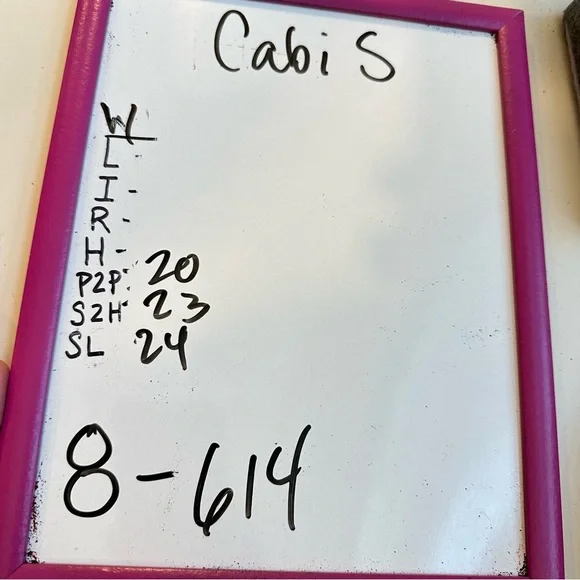 Cabi S
W
L -
I -
R -
H -
P2P: 20
S2H: 23
SL 24
8-614